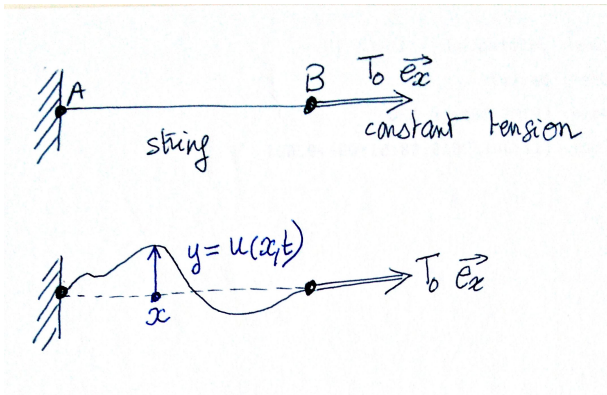 A
B
T₀ e⃗ₓ
string
constant tension
y = u(x,t)
x
T₀ e⃗ₓ